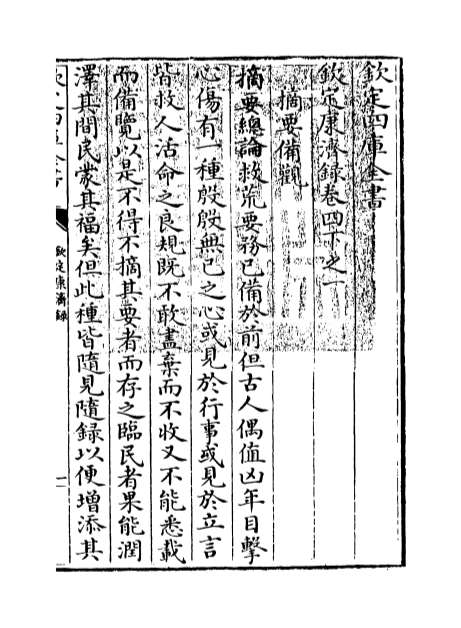 欽定四庫全書
欽定康濟錄卷四下之一
摘要備觀
摘要總論救荒要務已備於前但古人偶值凶年目擊
心傷有一種殷殷無已之心或見於行事或見於立言
皆救人活命之良規既不敢盡棄而不收又不能悉載
而備覽以是不得不摘其要者而存之臨民者果能潤
澤其間民蒙其福矣但此種皆隨見隨錄以便增添其
欽定康濟錄
一